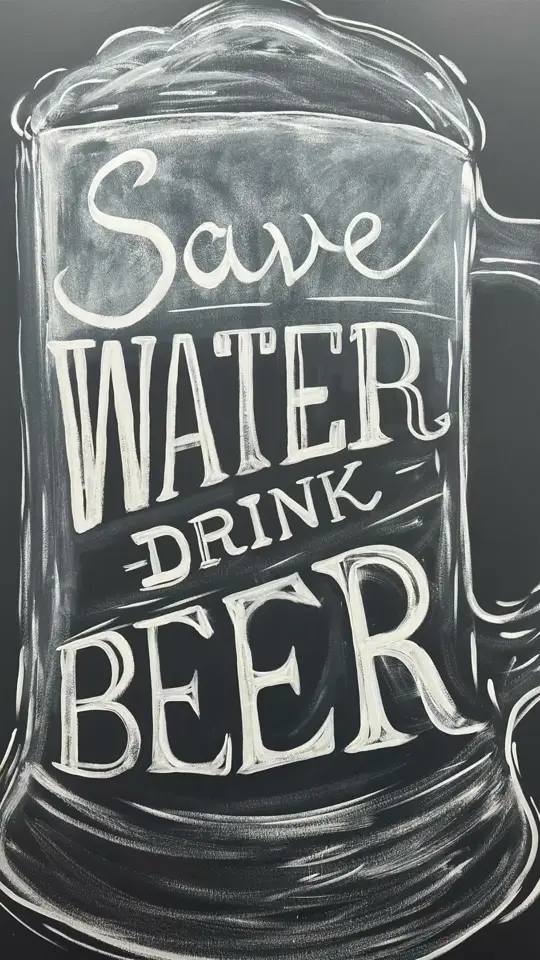 Save
WATER
DRINK
BEER